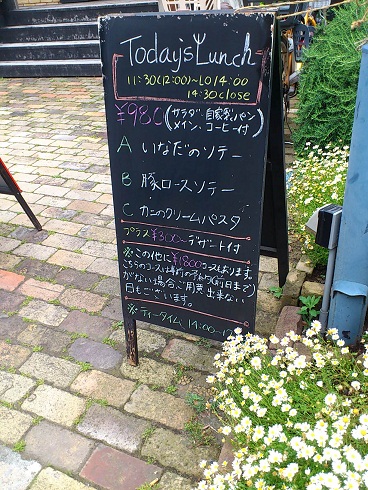 Today's Lunch
11:30(12:00)~LO 14:00
14:30 close
¥980(サラダ・自家製パン
メイン・コーヒー付)
A いなだのソテー
B 豚ロースソテー
C カニのクリームパスタ
プラス¥300~デザート付
※この他に¥1800コースもあります。
こちらのコースは予約のみ(前日まで)
がない場合ご用意出来ない
日もございます。
※ティータイム、14:00~17